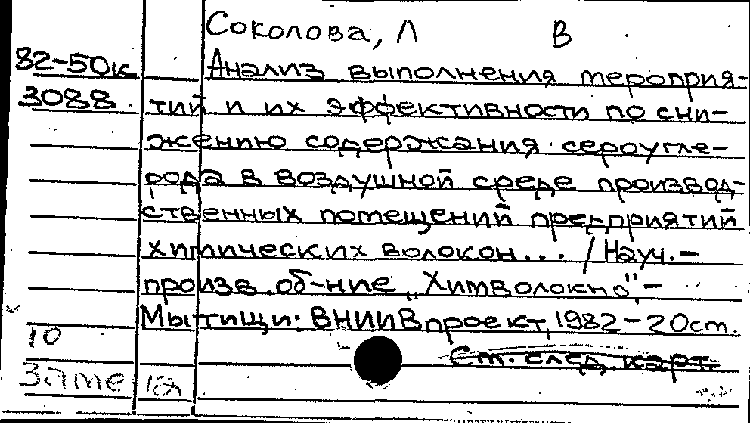 Соколова, Л В
82-50к Анализ выполнения мероприя-
3088 тий и их эффективности по сни-
жению содержания сероугле-
рода в воздушной среде производ-
ственных помещений предприятий
химических волокон... / Науч.-
произв. об-ние „Химволокно",-
Мытищи: ВНИИВпроект, 1982-20ст.
10 Ст. след. карт.
Замена